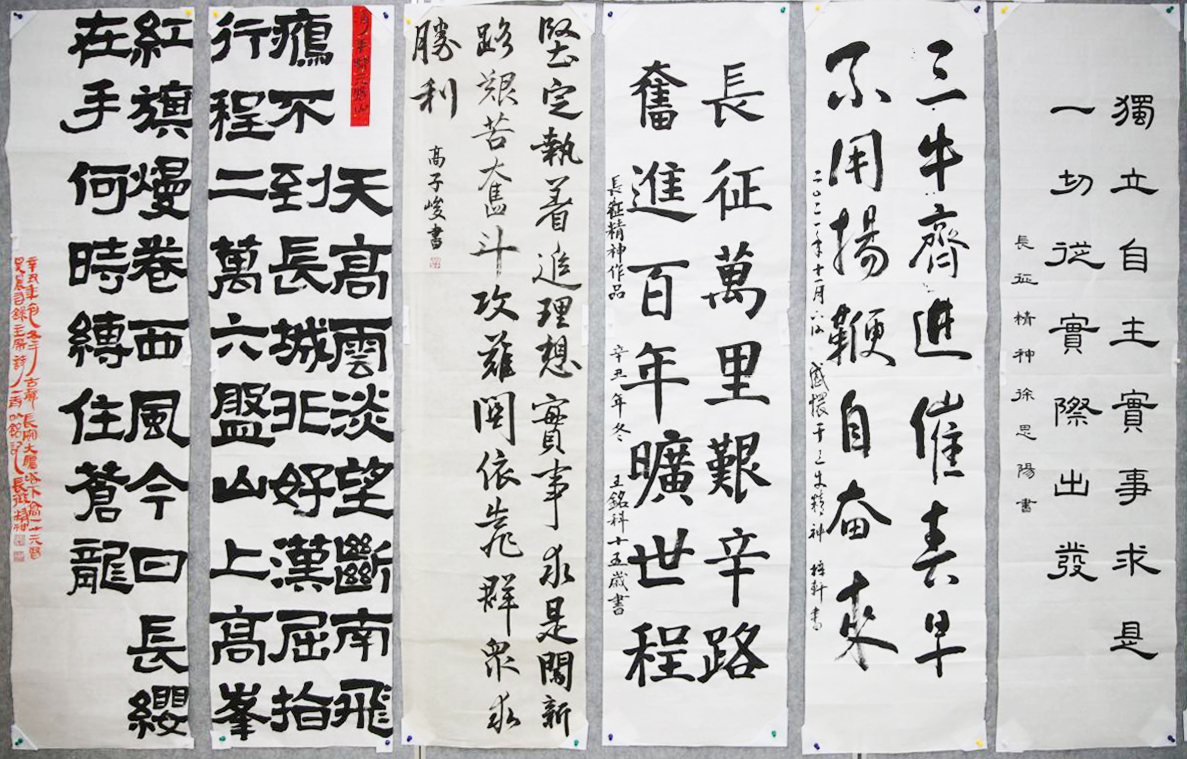 獨立自主實事求是
一切從實際出發
長征精神 徐思陽書
三牛齊進催春早
不用揚鞭自奋來
二〇二一年十一月 精神 書
長征萬里艱辛路
奮進百年曠世程
長征精神作品 辛丑年冬 王銘科十五歲書
堅定執着追理想 實事求是闖新
路艱苦奮斗攻難関依靠群眾求
勝利
高子峻書
天高雲淡望斷南飛
鴈不到長城非好漢屈指
行程二萬六盤山上高峯
紅旗漫卷西風今日 長纓
在手何時縛住蒼龍